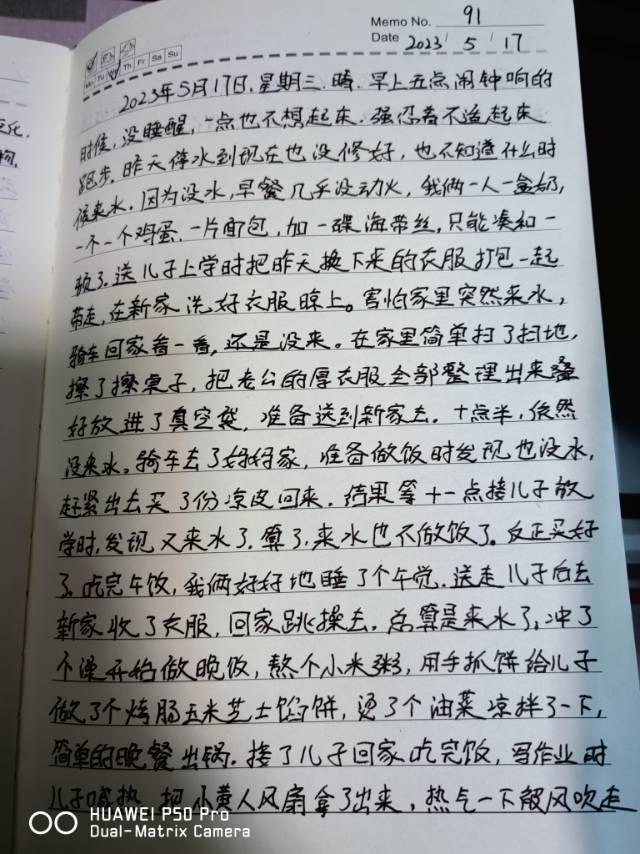 Memo No. 91
Mo Tu We Th Fr Sa Su
Date 2023 / 5 / 17
2023年5月17日,星期三.晴.早上五点闹钟响的
时候,没睡醒,一点也不想起床.强忍着不适起床
跑步.昨天停水到现在也没修好,也不知道什么时
候来水.因为没水,早餐几乎没动火,我俩一人一盒奶,
一个鸡蛋.一片面包,加一碟海带丝,只能凑和一
顿了.送儿子上学时把昨天换下来的衣服打包一起
带走,在新家洗好衣服晾上。害怕家里突然来水,
骑车回家看一看,还是没来。在家里简单扫了扫地,
擦了擦桌子,把老公的厚衣服全部整理出来叠
好放进了真空袋,准备送到新家去.十点半,依然
没来水。骑车去了好好家,准备做饭时发现也没水,
赶紧出去买了份凉皮回来.结果等十一点接儿子放
学时,发现又来水了.算了,来水也不做饭了。反正买好
了.吃完午饭,我俩好好地睡了个午觉.送走儿子后去
新家收了衣服,回家跳操去.总算是来水了,冲了
个澡开始做晚饭,熬个小米粥,用手抓饼给儿子
做了个烤肠玉米芝士馅饼,烫了个油菜凉拌了一下,
简单的晚餐出锅.接了儿子回家吃完饭,写作业时
儿子喊热.把小黄人风扇拿了出来,热气一下被风吹走
化,
物,
HUAWEI P50 Pro
Dual-Matrix Camera